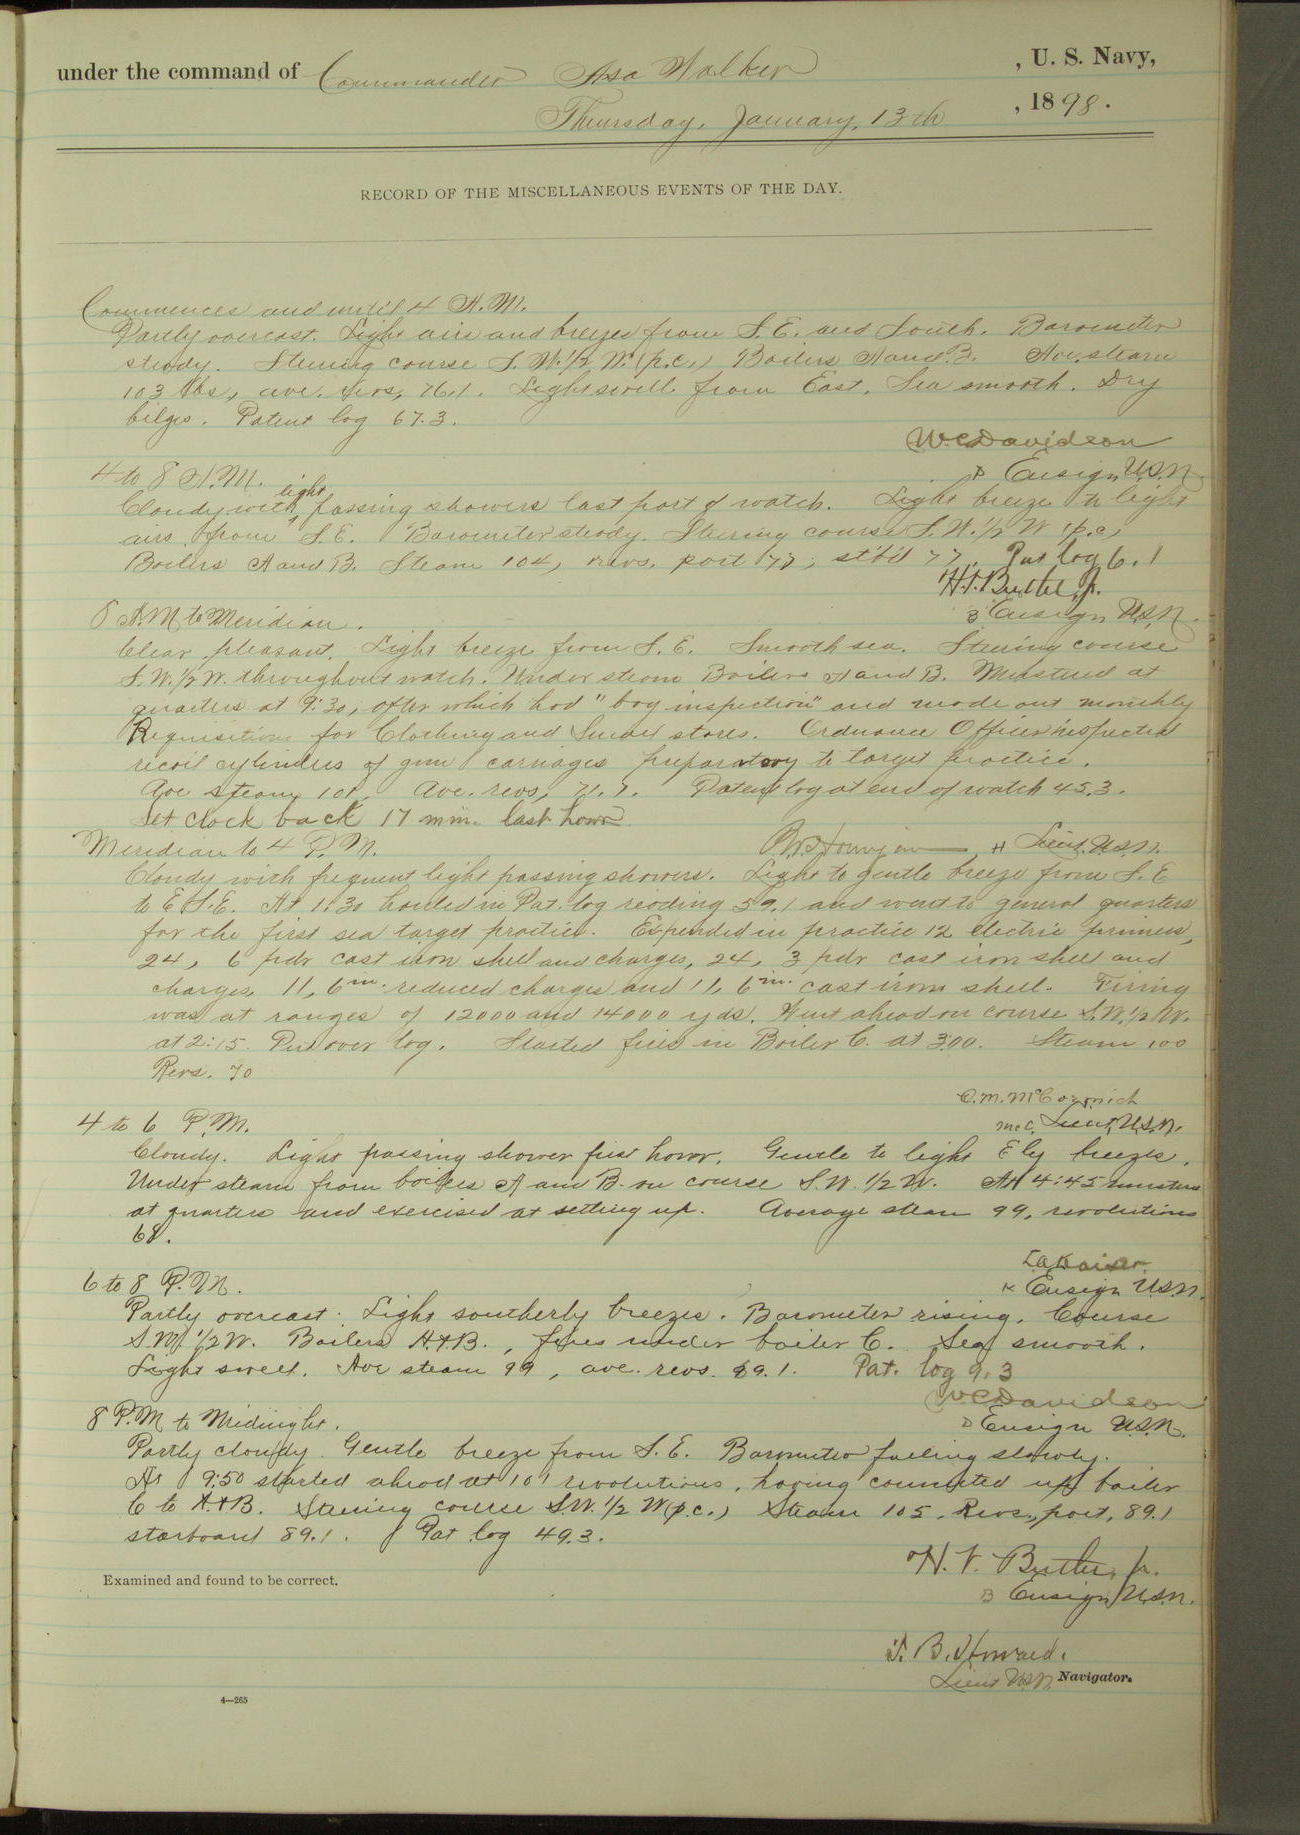 under the command of Commander Asa Walker , U. S. Navy,
Thursday, January, 13th , 1898.
RECORD OF THE MISCELLANEOUS EVENTS OF THE DAY.
Commences and until 4 A.M.
Partly overcast. Light airs and breezes from S.E. and South. Barometer
steady. Steering course S.W.1/2 W. (p.c.) Boilers A and B. Ave. steam
103 lbs, ave. revs, 76.1. Light swell from East. Sea smooth. Dry
bilges. Patent log 67.3.
W.C. Davidson
D Ensign U.S.N.
4 to 8 A.M.
Cloudy with light passing showers last part of watch. Light breeze to light
airs from S.E. Barometer steady. Steering course S.W.1/2 W (p.c.)
Boilers A and B. Steam 104, revs. port 77, stb'd 77. Pat log 6.1
H.V. Butler, Jr.
B Ensign U.S.N.
8 A.M to Meridian.
Clear, pleasant. Light breeze from S.E. Smooth sea. Steering course
S.W.1/2 W. throughout watch. Under steam Boilers A and B. Mustered at
quarters at 9:30, after which had "bag inspection" and made out monthly
Requisitions for Clothing and Small stores. Ordnance Officer inspected
recoil cylinders of gun carriages preparatory to target practice.
Ave steam 101, Ave. revs, 71.7. Patent log at end of watch 45.3.
Set clock back 17 min. last hour
H Lieut. U.S.N.
Meridian to 4 P.M.
Cloudy with frequent light passing showers. Light to gentle breeze from S.E
to E.S.E. At 1:30 hauled in Pat. log reading 59.1 and went to general quarters
for the first sea target practice. Expended in practice 12 electric primers,
24, 6 pdr cast iron shell and charges, 24, 3 pdr cast iron shell and
charges, 11, 6 in. reduced charges and 11, 6 in. cast iron shell. Firing
was at ranges of 12000 and 14000 yds. Went ahead on course S.W.1/2 W.
at 2:15. Put over log. Started fires in Boiler C. at 3.00. Steam 100
Revs. 70
C.M. McCormick
McC. Lieut, U.S.N.
4 to 6 P.M.
Cloudy. Light passing shower first hour. Gentle to light E'ly breezes.
Under steam from boilers A and B. on course S.W. 1/2 W. At 4:45 mustered
at quarters and exercised at setting up. Average steam 99, revolutions
68.
L.A. Kaiser
K Ensign U.S.N.
6 to 8 P.M.
Partly overcast. Light southerly breezes. Barometer rising. Course
S.W. 1/2 W. Boilers A.+B., fires under boiler C. Sea smooth.
Light swell. Ave steam 99, ave. revs. 69.1. Pat. log 9.3
W C Davidson
D Ensign U.S.N.
8 P.M to Midnight.
Partly cloudy. Gentle breeze from S.E. Barometer falling slowly.
At 9:50 started ahead at 101 revolutions, having connected up boiler
C to A.+B. Steering course S.W. 1/2 W (p.c.) Steam 105. Revs., port, 89.1
starboard 89.1. Pat log 49.3.
H. V. Butler, Jr.
B Ensign, U.S.N.
Examined and found to be correct.
T. B. Howard.
Lieut U.S.N. Navigator.
4—265